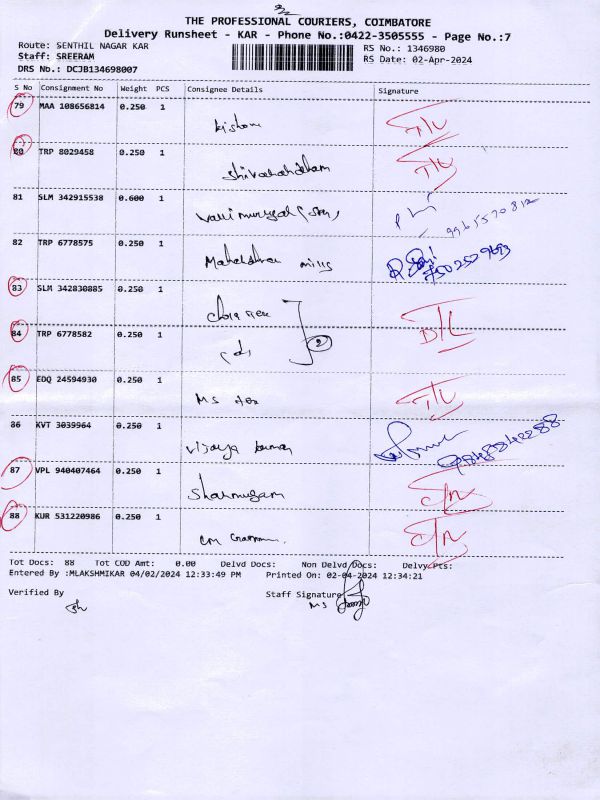 THE PROFESSIONAL COURIERS, COIMBATORE
Delivery Runsheet - KAR - Phone No.:0422-3505555 - Page No.:7
Route: SENTHIL NAGAR KAR
RS No.: 1346980
Staff: SREERAM
RS Date: 02-Apr-2024
DRS No.: DCJB134698007
S No Consignment No Weight PCS Consignee Details Signature
79 MAA 108656814 0.250 1
T/L
80 TRP 8029458 0.250 1
T/L
81 SLM 342915538 0.600 1
82 TRP 6778575 0.250 1
83 SLM 342830885 0.250 1
84 TRP 6778582 0.250 1
2
D/L
85 EDQ 24594930 0.250 1
MS
T/L
86 KVT 3039964 0.250 1
Vijaya kumar
87 VPL 940407464 0.250 1
Shanmugam
88 KUR 531220986 0.250 1
Tot Docs: 88 Tot COD Amt: 0.00 Delvd Docs: Non Delvd/Docs: Delvy Pts:
Entered By :MLAKSHMIKAR 04/02/2024 12:33:49 PM Printed On: 02-04-2024 12:34:21
Verified By Staff Signature
MS